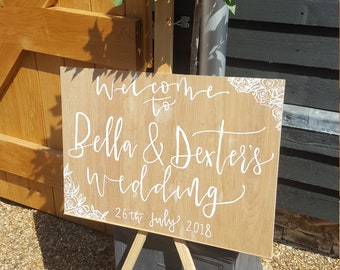 Welcome
to
Bella & Dexter's
Wedding
26th July 2018